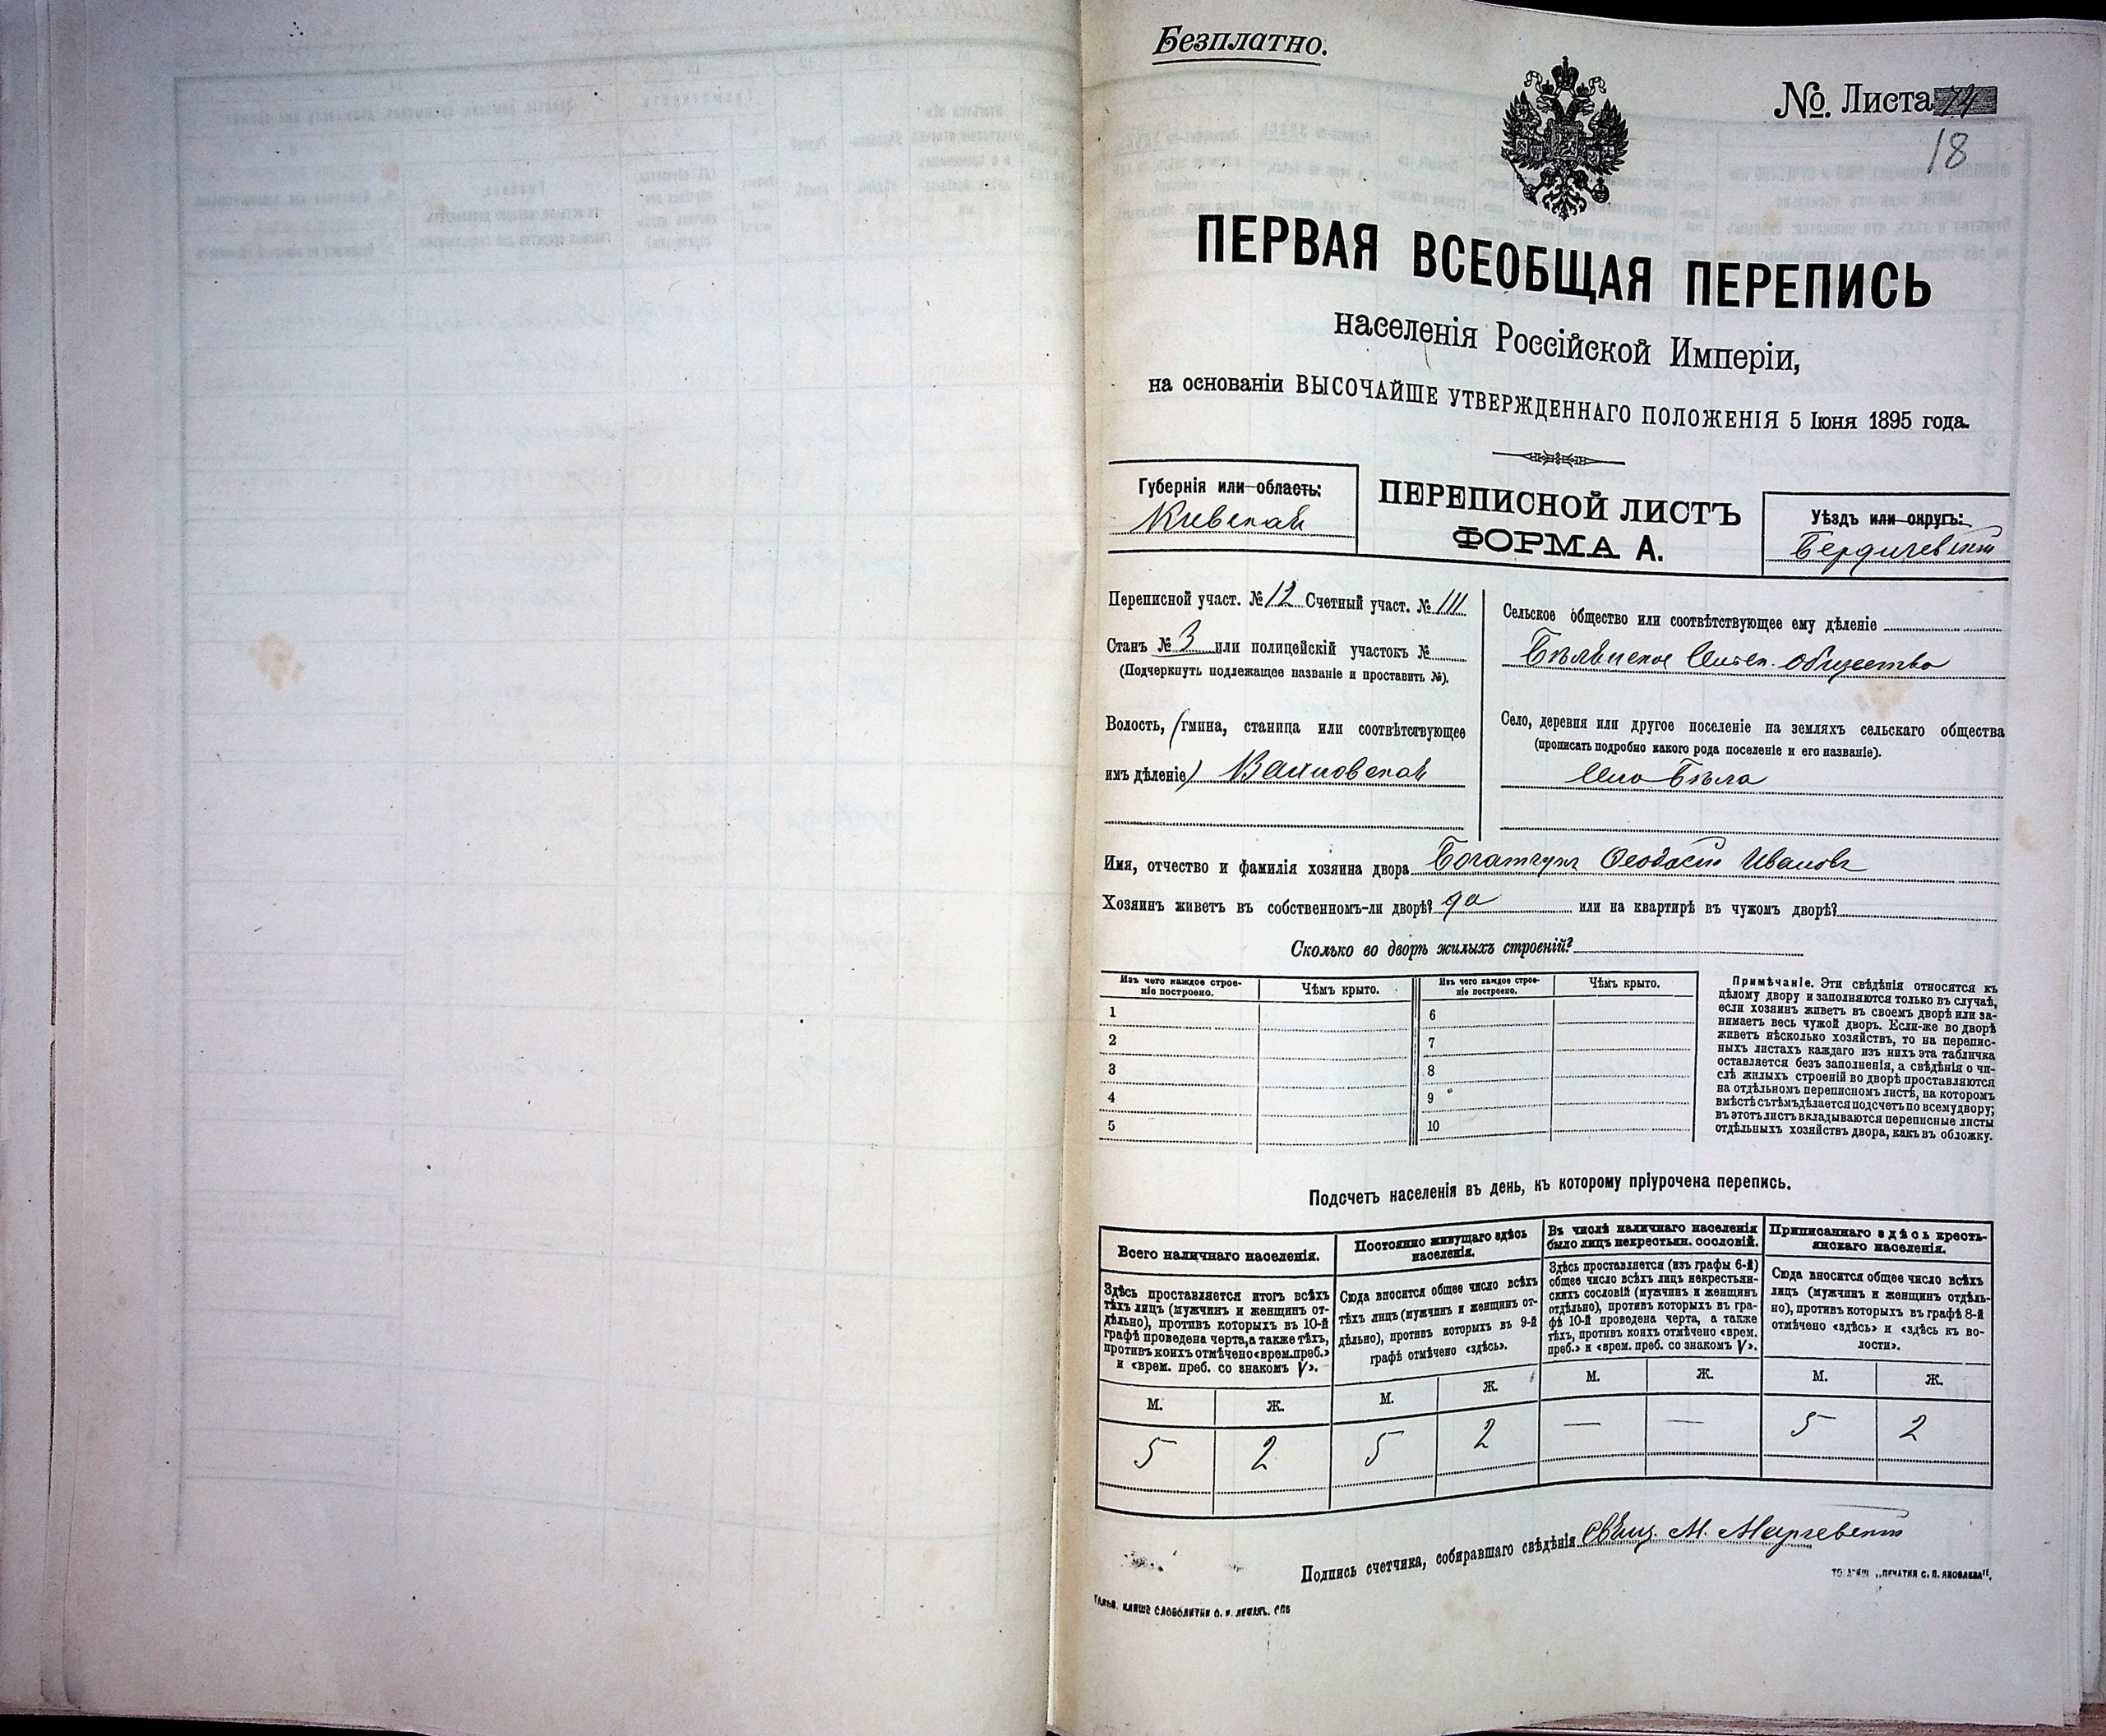 Безплатно.
№. Листа 74
18
ПЕРВАЯ ВСЕОБЩАЯ ПЕРЕПИСЬ
населенія Россійской Имперіи,
на основаніи ВЫСОЧАЙШЕ УТВЕРЖДЕННАГО ПОЛОЖЕНІЯ 5 Іюня 1895 года.
Губернія или область:
Кіевская
ПЕРЕПИСНОЙ ЛИСТЪ
ФОРМА А.
Уѣздъ или округъ:
Бердичевскій
Переписной участ. № 12 Счетный участ. № III
Станъ № 3 или полицейскій участокъ №
(Подчеркнуть подлежащее названіе и проставить №).
Волость, (гмина, станица или соотвѣтствующее
имъ дѣленіе) Вахновская
Сельское общество или соотвѣтствующее ему дѣленіе
Бѣлянское Сельск. общество
Село, деревня или другое поселеніе на земляхъ сельскаго общества
(прописать подробно какого рода поселеніе и его названіе).
Село Бѣла
Имя, отчество и фамилія хозяина двора Богатчукъ Феодосій Ивановъ
Хозяинъ живетъ въ собственномъ-ли дворѣ? да или на квартирѣ въ чужомъ дворѣ?
Сколько во дворѣ жилыхъ строеній?
Изъ чего каждое строе-
ніе построено.
Чѣмъ крыто.
Изъ чего каждое строе-
ніе построено.
Чѣмъ крыто.
1
2
3
4
5
6
7
8
9
10
Примѣчаніе. Эти свѣдѣнія относятся къ
цѣлому двору и заполняются только въ случаѣ,
если хозяинъ живетъ въ своемъ дворѣ или за-
нимаетъ весь чужой дворъ. Если-же во дворѣ
живетъ нѣсколько хозяйствъ, то на перепис-
ныхъ листахъ каждаго изъ нихъ эта табличка
оставляется безъ заполненія, а свѣдѣнія о чи-
слѣ жилыхъ строеній во дворѣ проставляются
на отдѣльномъ переписномъ листѣ, на которомъ
вмѣстѣ съ тѣмъ дѣлается подсчетъ по всему двору;
въ этотъ листъ вкладываются переписные листы
отдѣльныхъ хозяйствъ двора, какъ въ обложку.
Подсчетъ населенія въ день, къ которому пріурочена перепись.
Всего наличнаго населенія.
Здѣсь проставляется итогъ всѣхъ
тѣхъ лицъ (мужчинъ и женщинъ от-
дѣльно), противъ которыхъ въ 10-й
графѣ проведена черта, а также тѣхъ,
противъ коихъ отмѣчено «врем. преб.»
и «врем. преб. со знакомъ V».
М. Ж.
5 2
Постоянно живущаго здѣсь
населенія.
Сюда вносится общее число всѣхъ
тѣхъ лицъ (мужчинъ и женщинъ от-
дѣльно), противъ которыхъ въ 9-й
графѣ отмѣчено «здѣсь».
М. Ж.
5 2
Въ числѣ наличнаго населенія
было лицъ некрестьян. сословій.
Здѣсь проставляется (изъ графы 6-й)
общее число всѣхъ лицъ некрестьян-
скихъ сословій (мужчинъ и женщинъ
отдѣльно), противъ которыхъ въ гра-
фѣ 10-й проведена черта, а также
тѣхъ, противъ коихъ отмѣчено «врем.
преб.» и «врем. преб. со знакомъ V».
М. Ж.
— —
Приписаннаго здѣсь кресть-
янскаго населенія.
Сюда вносится общее число всѣхъ
лицъ (мужчинъ и женщинъ отдѣль-
но), противъ которыхъ въ графѣ 8-й
отмѣчено «здѣсь» и «здѣсь къ во-
лости».
М. Ж.
5 2
Подпись счетчика, собиравшаго свѣдѣнія Свящ. М.
„ПЕЧАТНЯ С. П. ЯКОВЛЕВА".
КЛИШЕ СЛОВОЛИТНИ О. И. ЛЕМАНЪ. СПБ